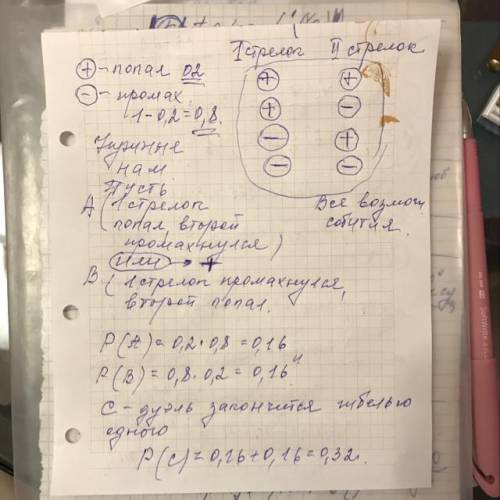 I стрелок II стрелок
⊕ - попал 0,2
⊖ - промах.
1-0,2=0,8.
+ +
+ -
- +
- -
нам.
Пусть
Все возможн.
события.
A (1 стрелок
попал, второй
промахнулся)
или → +
B (1 стрелок промахнулся,
второй попал.
P(A)=0,2·0,8=0,16
P(B)=0,8·0,2=0,16
C - дуэль закончится гибелью
одного
P(C)=0,16+0,16=0,32.